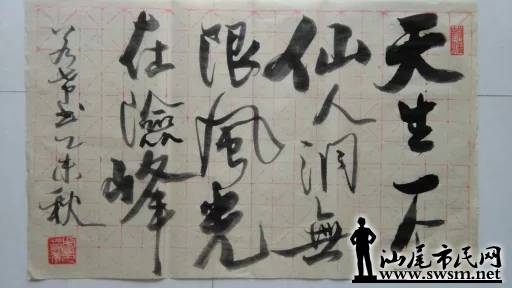 天生一个
仙人洞無
限風光
在險峰
书乙未秋
汕尾市民网
www.swsm.net